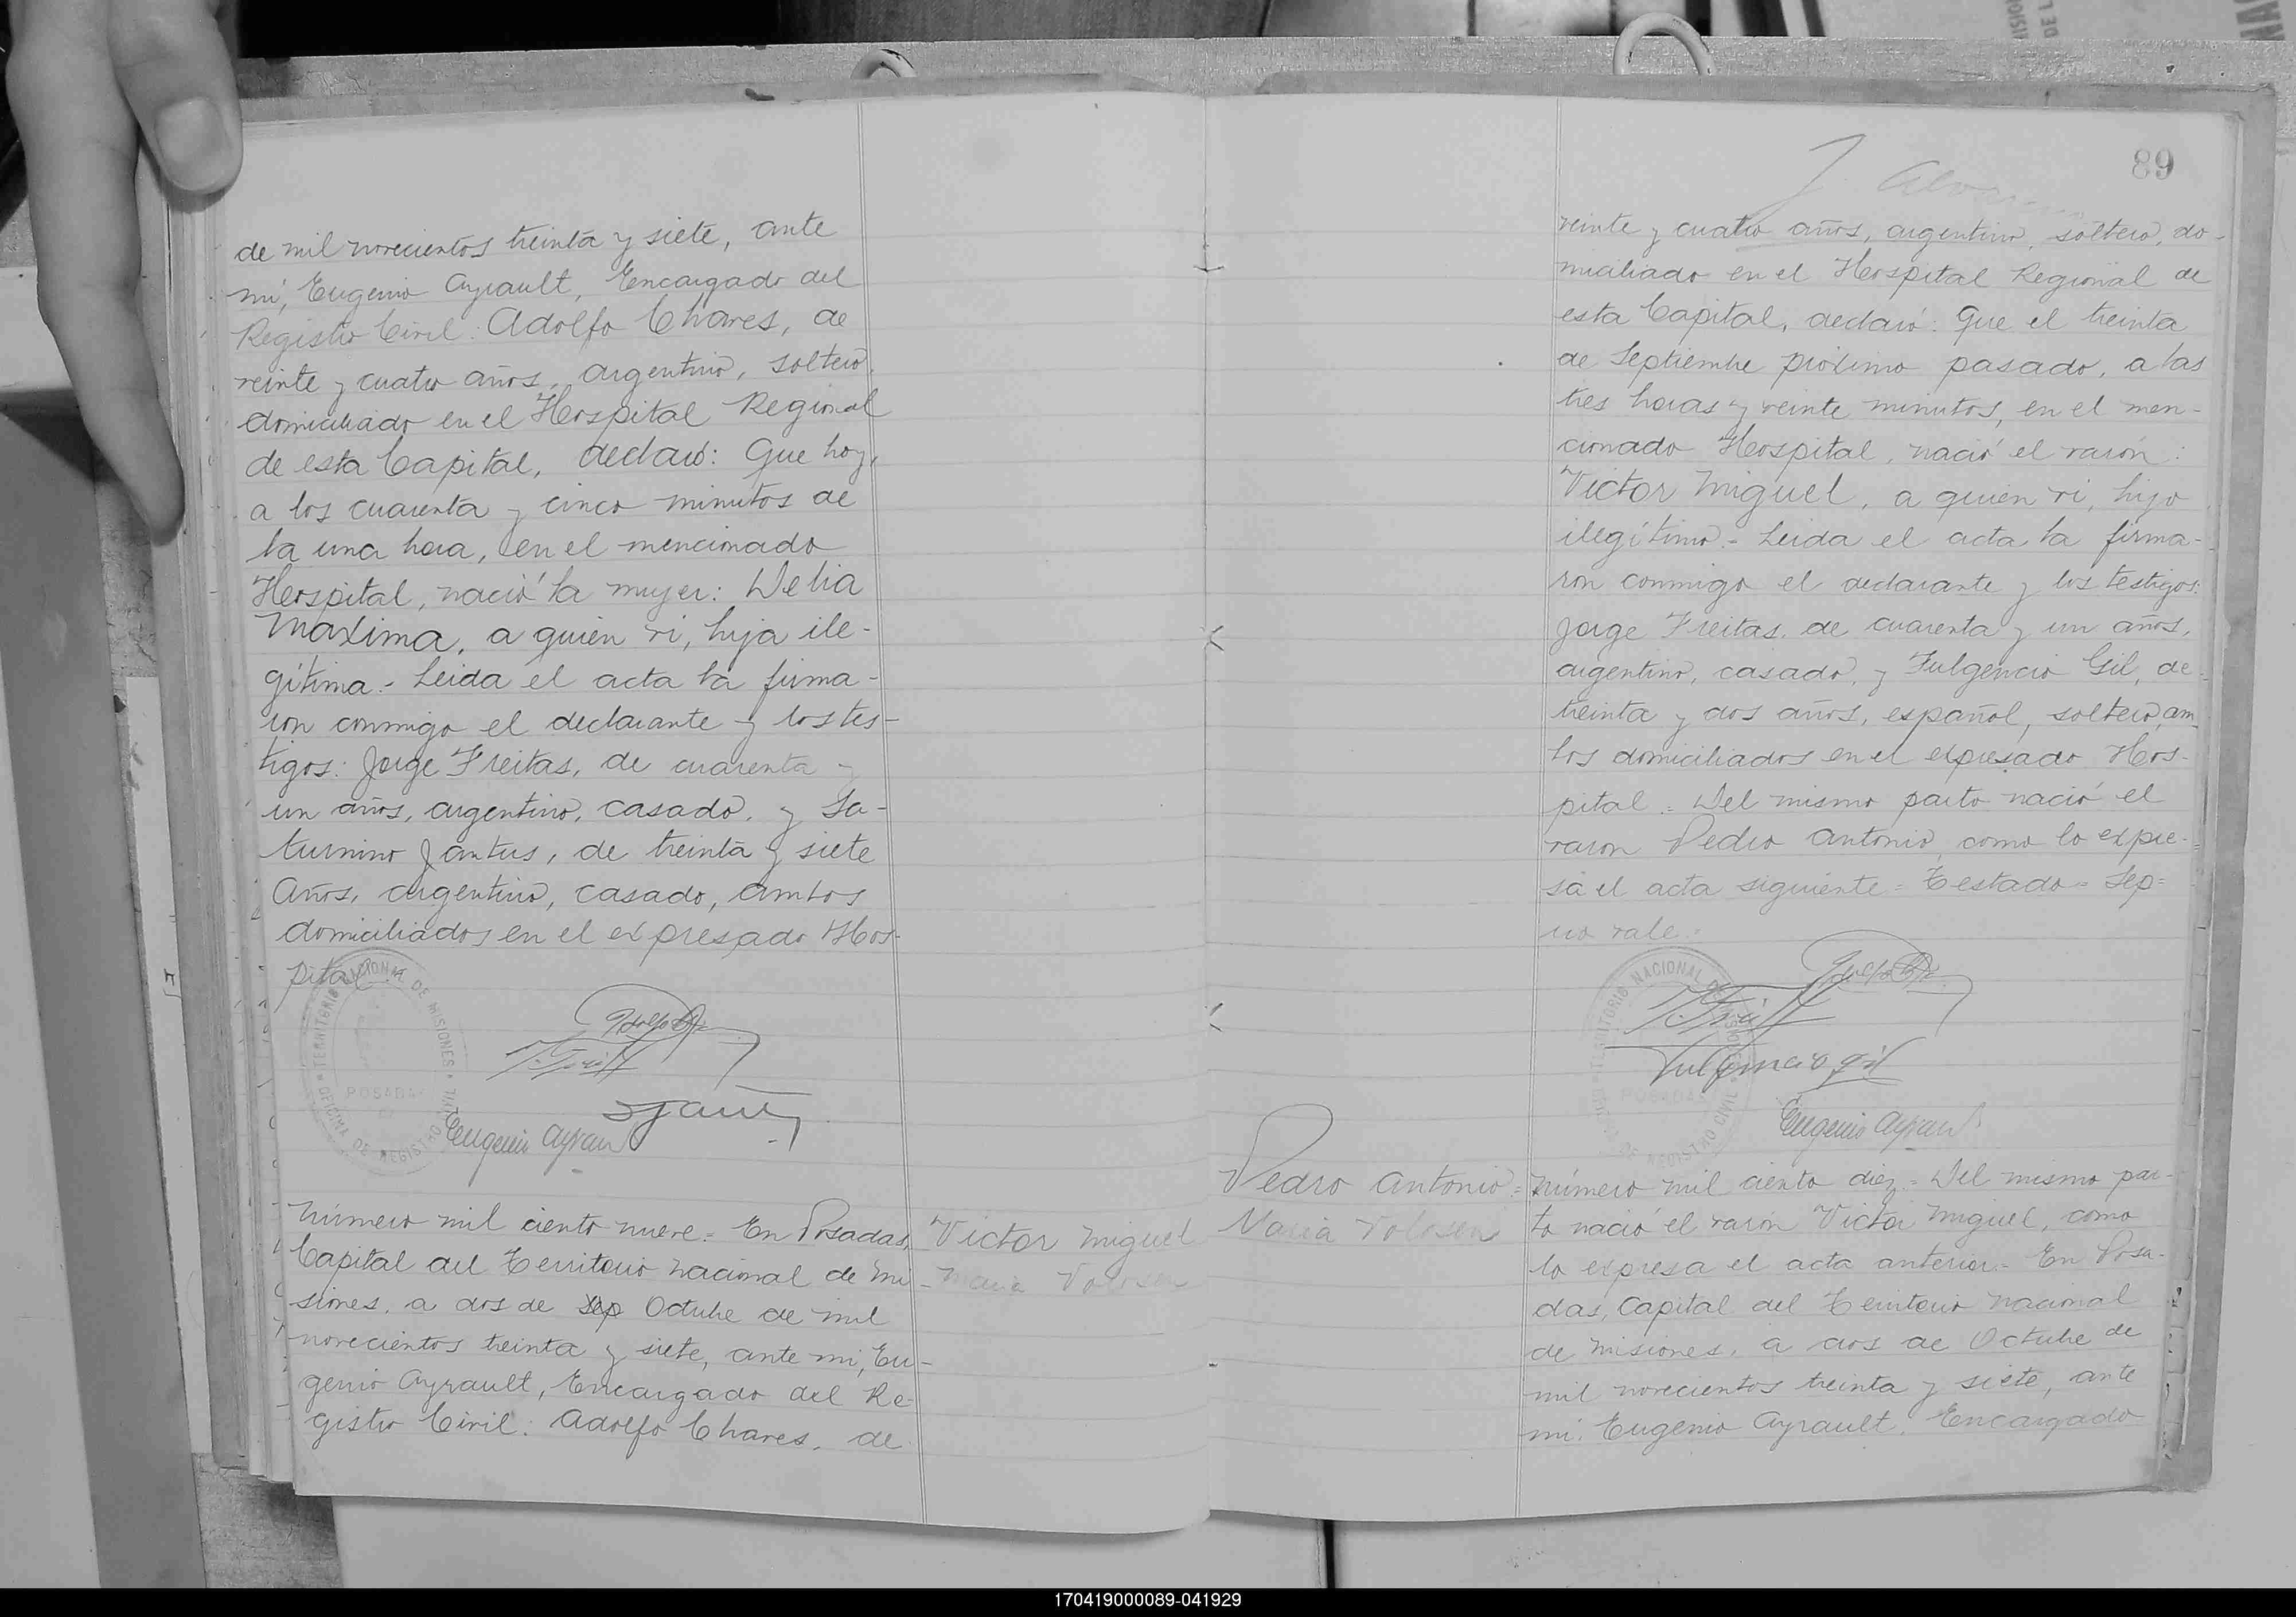 de mil novecientos treinta y siete, ante
mí, Eugenio Ayrault, Encargado del
Registro Civil: Adolfo Chaves, de
veinte y cuatro años, argentino, soltero,
domiciliado en el Hospital Regional
de esta Capital, declaró: Que hoy,
a los cuarenta y cinco minutos de
la una hora, en el mencionado
Hospital, nació la mujer: Delia
Maxima, a quien vi, hija ile-
gítima.- Leida el acta la firma-
ron conmigo el declarante y los tes-
tigos: Jorge Freitas, de cuarenta y
un años, argentino, casado, y Sa-
turnino Jantus, de treinta y siete
años, argentino, casado, ambos
domiciliados en el expresado Hos-
pital.-
TERRITORIO NACIONAL DE MISIONES
OFICINA DE REGISTRO CIVIL
POSADAS
Eugenio Ayrault
Número mil ciento nueve.- En Posadas,
Capital del Territorio Nacional de Mi-
siones, a dos de Sep Octubre de mil
novecientos treinta y siete, ante mi, Eu-
genio Ayrault, Encargado del Re-
gistro Civil: Adolfo Chaves, de
Victor Miguel
Maria
89
J.
veinte y cuatro años, argentino, soltero, do-
miciliado en el Hospital Regional de
esta Capital, declaró: Que el treinta
de Septiembre próximo pasado, a las
tres horas y veinte minutos, en el men-
cionado Hospital, nació el varón:
Victor Miguel, a quien vi, hijo
ilegítimo.- Leida el acta la firma-
ron conmigo el declarante y los testigos:
Jorge Freitas, de cuarenta y un años,
argentino, casado, y Fulgencio Gil, de
treinta y dos años, español, soltero, am-
bos domiciliados en el expresado Hos-
pital.= Del mismo parto nació el
varon Pedro Antonio, como lo expre-
sa el acta siguiente= Testado= Sep=
no vale=
TERRITORIO NACIONAL DE MISIONES
DE REGISTRO CIVIL
POSADAS
Fulgencio gil
Eugenio Ayrault
Pedro Antonio=
Maria
Número mil ciento diez.= Del mismo par-
to nació el varón Victor Miguel, como
lo expresa el acta anterior.= En Posa-
das, Capital del Territorio Nacional
de Misiones, a dos de Octubre de
mil novecientos treinta y siete, ante
mi, Eugenio Ayrault, Encargado
170419000089-041929